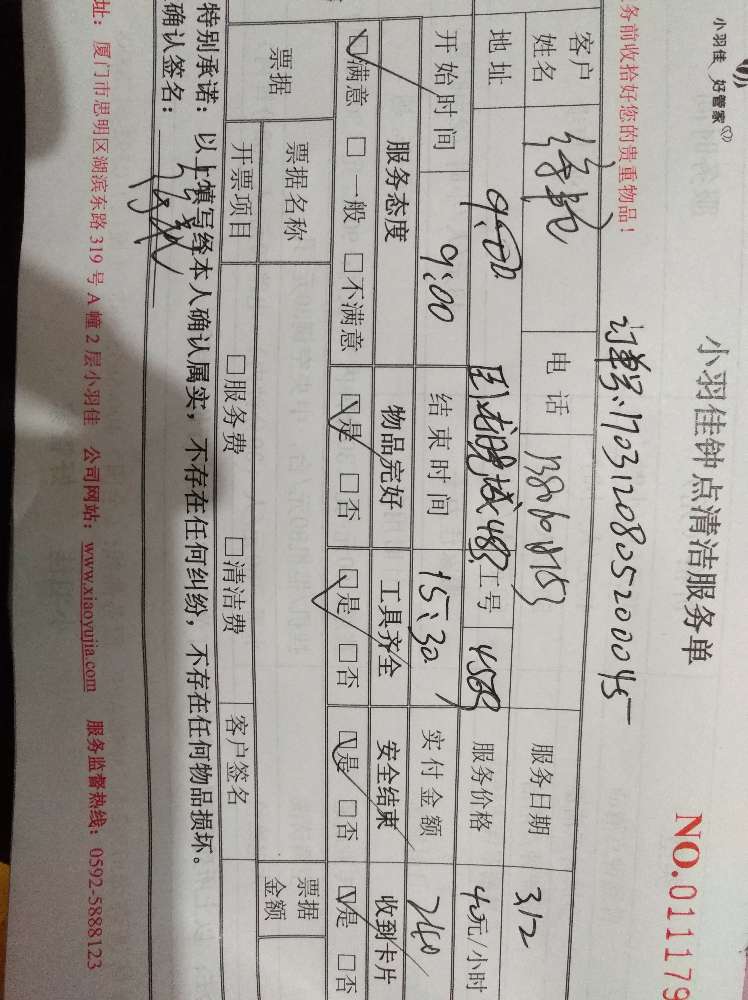 小羽佳 好管家
小羽佳钟点清洁服务单
NO.011179
务前收拾好您的贵重物品！
订单号：1703120805200045
客户姓名 电话 服务日期 312
地址 9:00 工号 4583 服务价格 40元/小时
开始时间 9:00 结束时间 15:30 实付金额 240
服务态度 物品完好 工具齐全 安全结束 收到卡片
☑满意 □一般 □不满意 ☑是 □否 ☑是 □否 ☑是 □否 ☑是 □否
票据 票据名称 票据金额
开票项目 □服务费 □清洁费 客户签名
特别承诺：以上填写经本人确认属实，不存在任何纠纷，不存在任何物品损坏。
确认签名：
址：厦门市思明区湖滨东路 319 号 A 幢 2 层小羽佳 公司网站：www.xiaoyujia.com 服务监督热线：0592-5888123